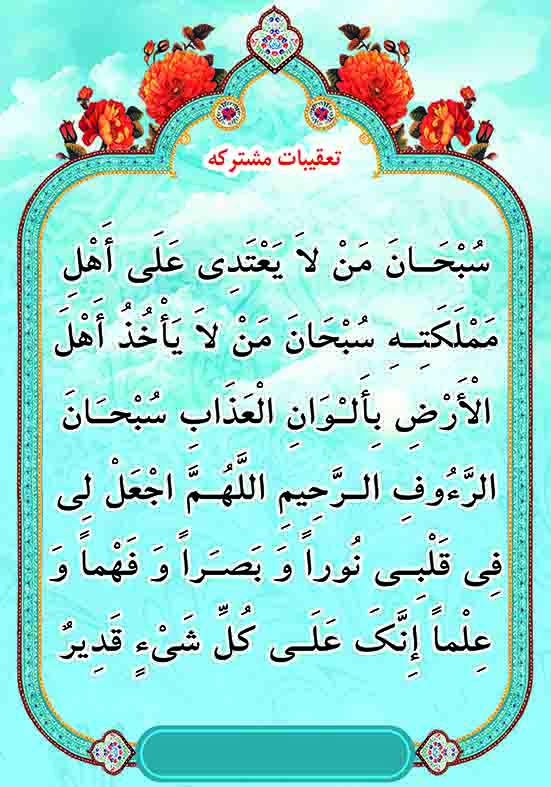 تعقیبات مشترکه
سُبْحَـانَ مَنْ لاَ یَعْتَدِی عَلَی أَهْلِ
مَمْلَکَتِـهِ سُبْحَانَ مَنْ لاَ یَأْخُذُ أَهْلَ
الْأَرْضِ بِأَلـْوَانِ الْعَذَابِ سُبْحَـانَ
الرَّءُوفِ الـرَّحِیمِ اللَّهُـمَّ اجْعَلْ لِی
فِی قَلْبِـی نُوراً وَ بَصَـراً وَ فَهْماً وَ
عِلْماً إِنَّکَ عَلَـی کُلِّ شَیْءٍ قَدِیرٌ